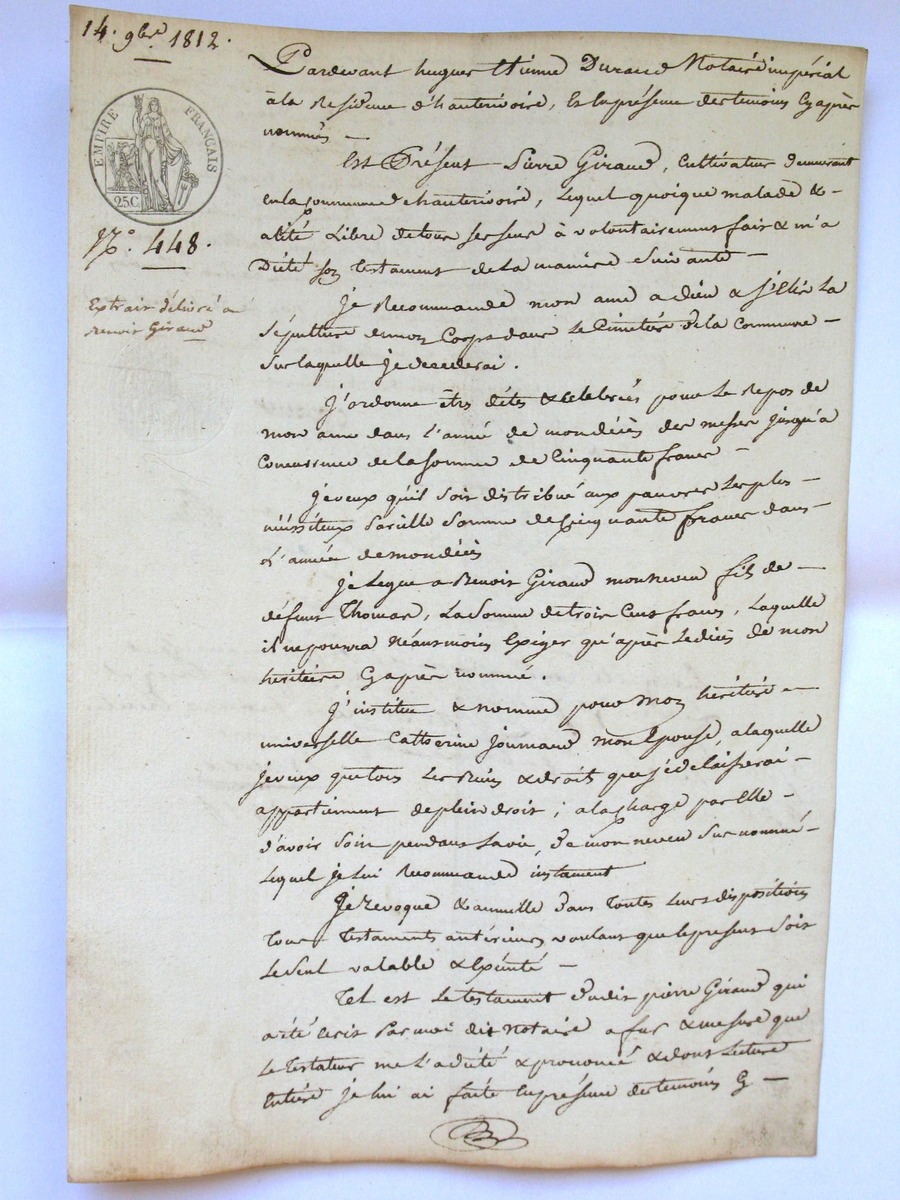 14. 9bre 1812.
EMPIRE FRANÇAIS
25C.
N°. 448.
Extrait délivré a
Benoit Giraud
Pardevant hugues Etienne Durand Notaire impérial
à la Residence d'hauterivoire, En la présence des temoins Cy après
nommés —
Est Présent Pierre Giraud, Cultivateur demeurant
en la Commune d'hauterivoire, Lequel quoique malade & -
alité Libre de tous ses sens à volontairement fait & m'a
Dicté son testament de La maniere Suivante —
Je Recommande mon ame a dieu & j'Elis La
Sépulture de mon Corps dans Le Cimetière de La Commune —
Sur laquelle je decederai.
J'ordonne êtres dites & célébrées pour Le Repos de
mon ame dans L'année de mon décès des messes jusqu'à
Concurrence de la Somme de Cinquante francs —
Je veux qu'il Soit distribué aux pauvres Les plus —
nécéssiteux Pareille Somme de Cinquante francs dans —
L'année de mon décès
Je Legue a Benoit Giraud mon neveu fils de —
défunt Thomas, La Somme de trois Cens francs, Laquelle
il ne pourra Néanmoins Exiger qu'après Le décès de mon
héritière Cy après nommée.
J'institue & nomme pour Mon héritière —
universelle Catherine Journaud mon Epouse, a laquelle
je veux que tous Les Biens & droits que je délaisserai —
appartiennent de plein droit; a la Charge par Elle —
d'avoir Soin pendant Sa vie, de mon neveu Sus nommé —
Lequel je Lui Recommande instament
Je Revoque & annulle Dans Toutes Leurs dispositions
Tous Testaments antérieurs voulant que le present Soit
Le Seul valable & Exécuté —
Tel est Le testament Dudit pierre Giraud qui
a été Ecrit Par moi dit Notaire a fur & mesure que
Le Testateur me L'a dicté & prononcé & dont Lecture
Entière je lui ai faite En présence des temoins Cy —